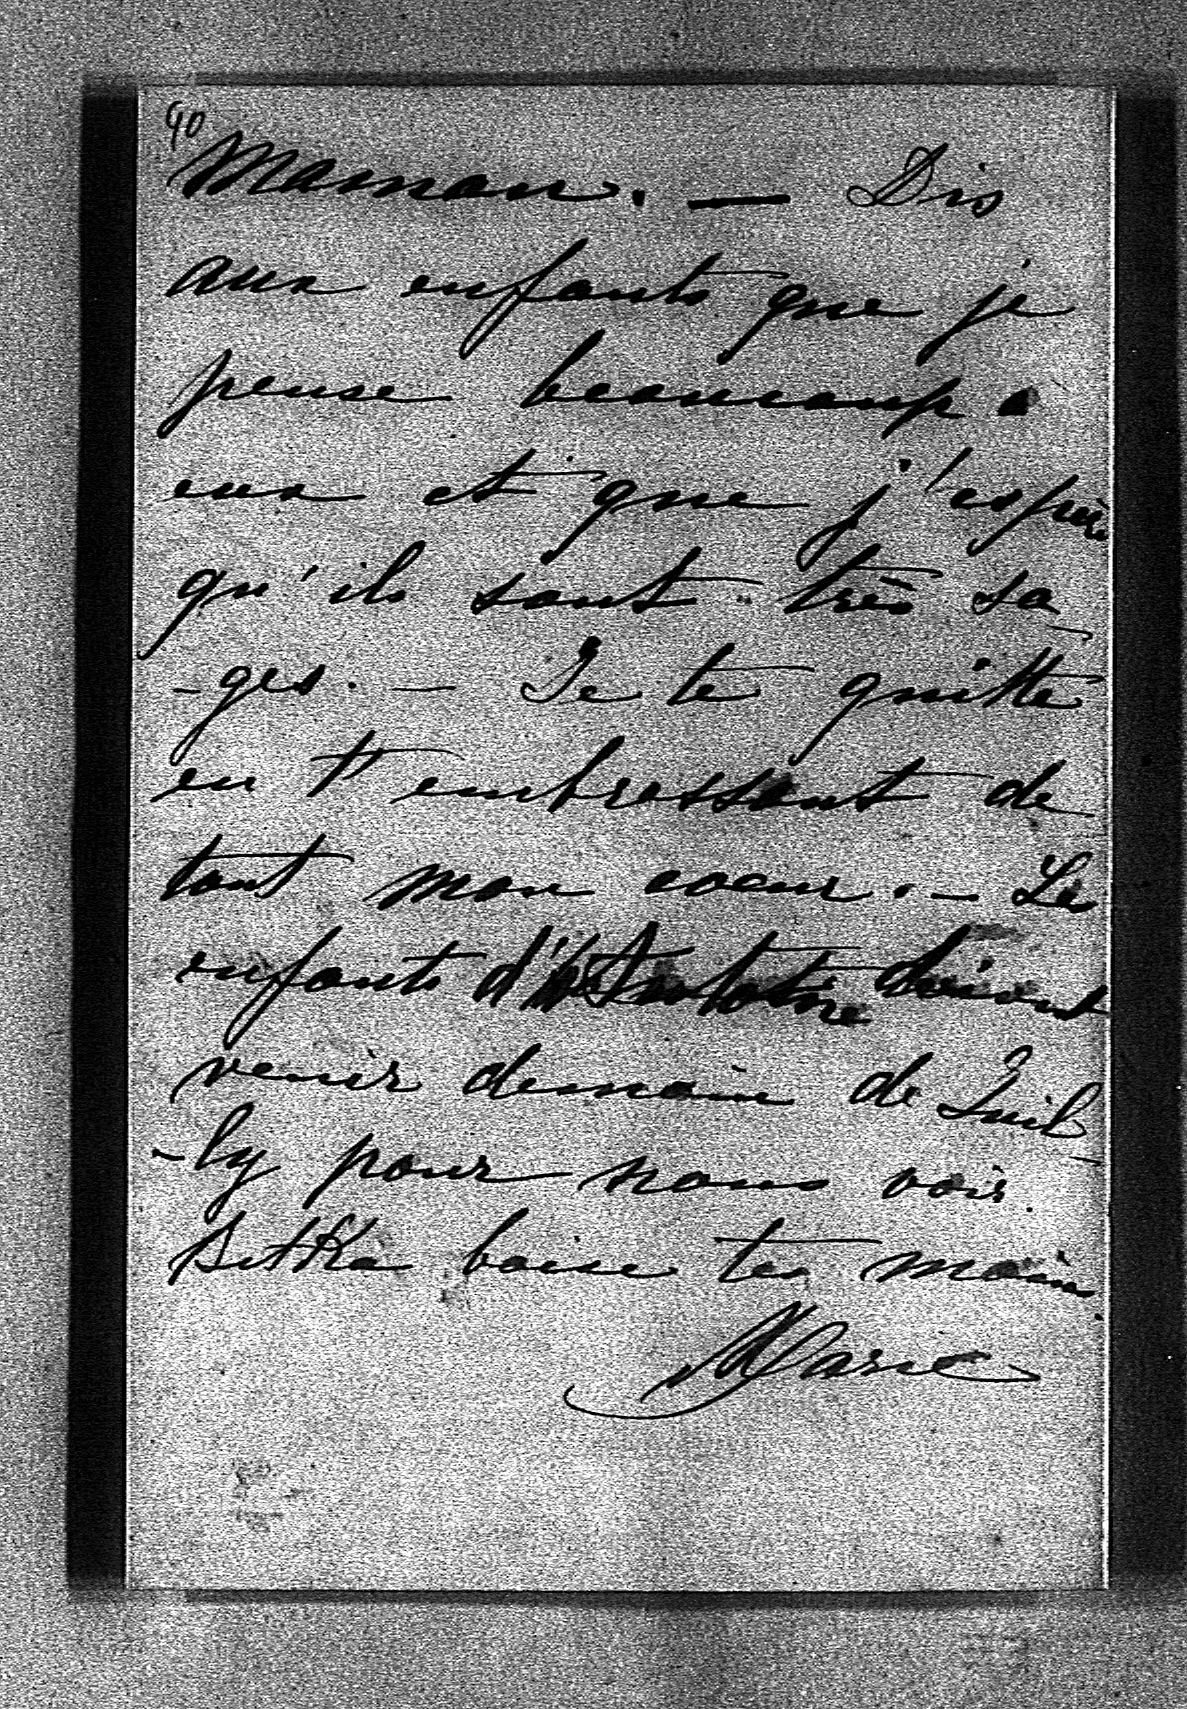 90
Maman. — Dis
aux enfants que je
pense beaucoup à
eux et que j'espère
qu'ils sont très sa
-ges. — Je te quitte
en t'embrassant de
tout mon coeur. — Les
enfants d'Antoine doivent
venir demain de Juil
-ly pour nous voir.
Bitka baise tes mains.
Marie